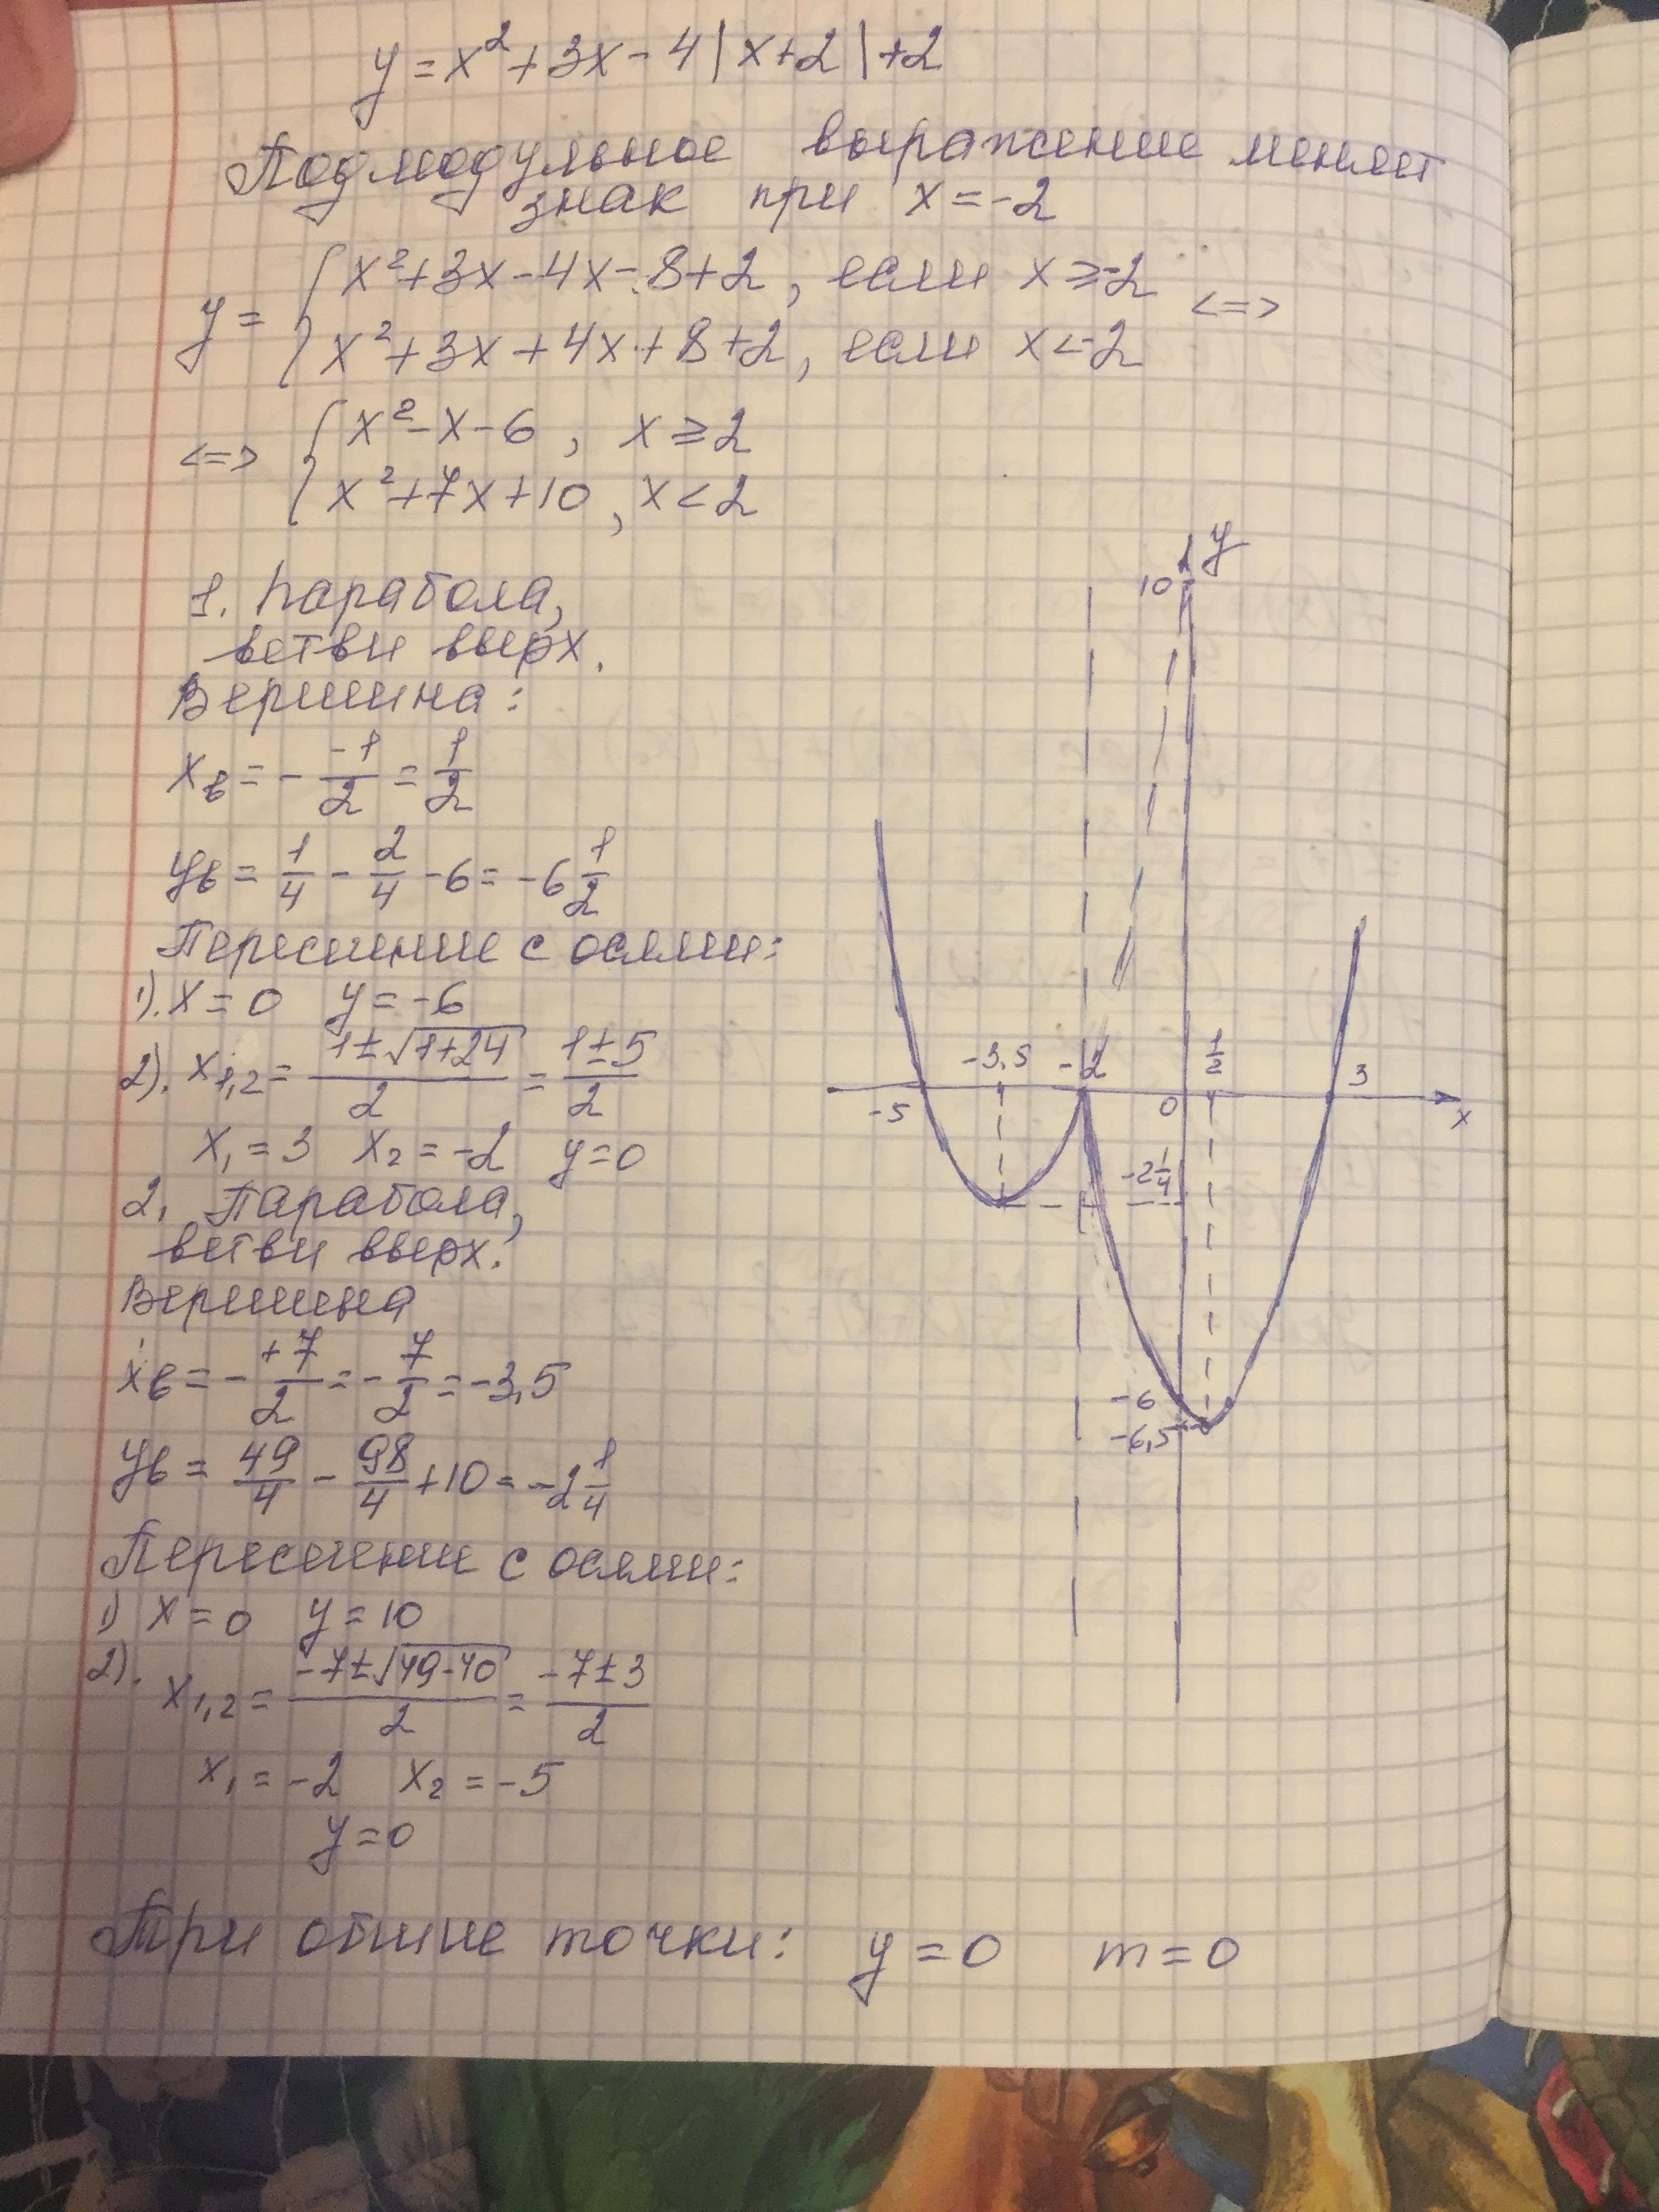 y = x² + 3x - 4|x+2| + 2
Подмодульное выражение меняет
знак при x = -2
y = { x² + 3x - 4x - 8 + 2, если x ≥ -2 <=>
{ x² + 3x + 4x + 8 + 2, если x < -2
<=> { x² - x - 6, x ≥ 2
{ x² + 7x + 10, x < 2
1. Парабола,
ветви вверх.
Вершина:
xв = - -1/2 = 1/2
yв = 1/4 - 2/4 - 6 = -6 1/2
Пересечение с осями:
1). x = 0 y = -6
2). x1,2 = (1 ± √(1+24))/2 = (1 ± 5)/2
x₁ = 3 x₂ = -2 y = 0
2. Парабола,
ветви вверх.
Вершина
xв = - +7/2 = - 7/2 = -3,5
yв = 49/4 - 98/4 + 10 = -2 1/4
Пересечение с осями:
1) x = 0 y = 10
2). x1,2 = (-7 ± √(49-40))/2 = (-7 ± 3)/2
x₁ = -2 x₂ = -5
y = 0
y
10
-3,5 -2 1/2 3
-5 0 x
-2 1/4
-6
-6,5
Три общие точки: y = 0 m = 0